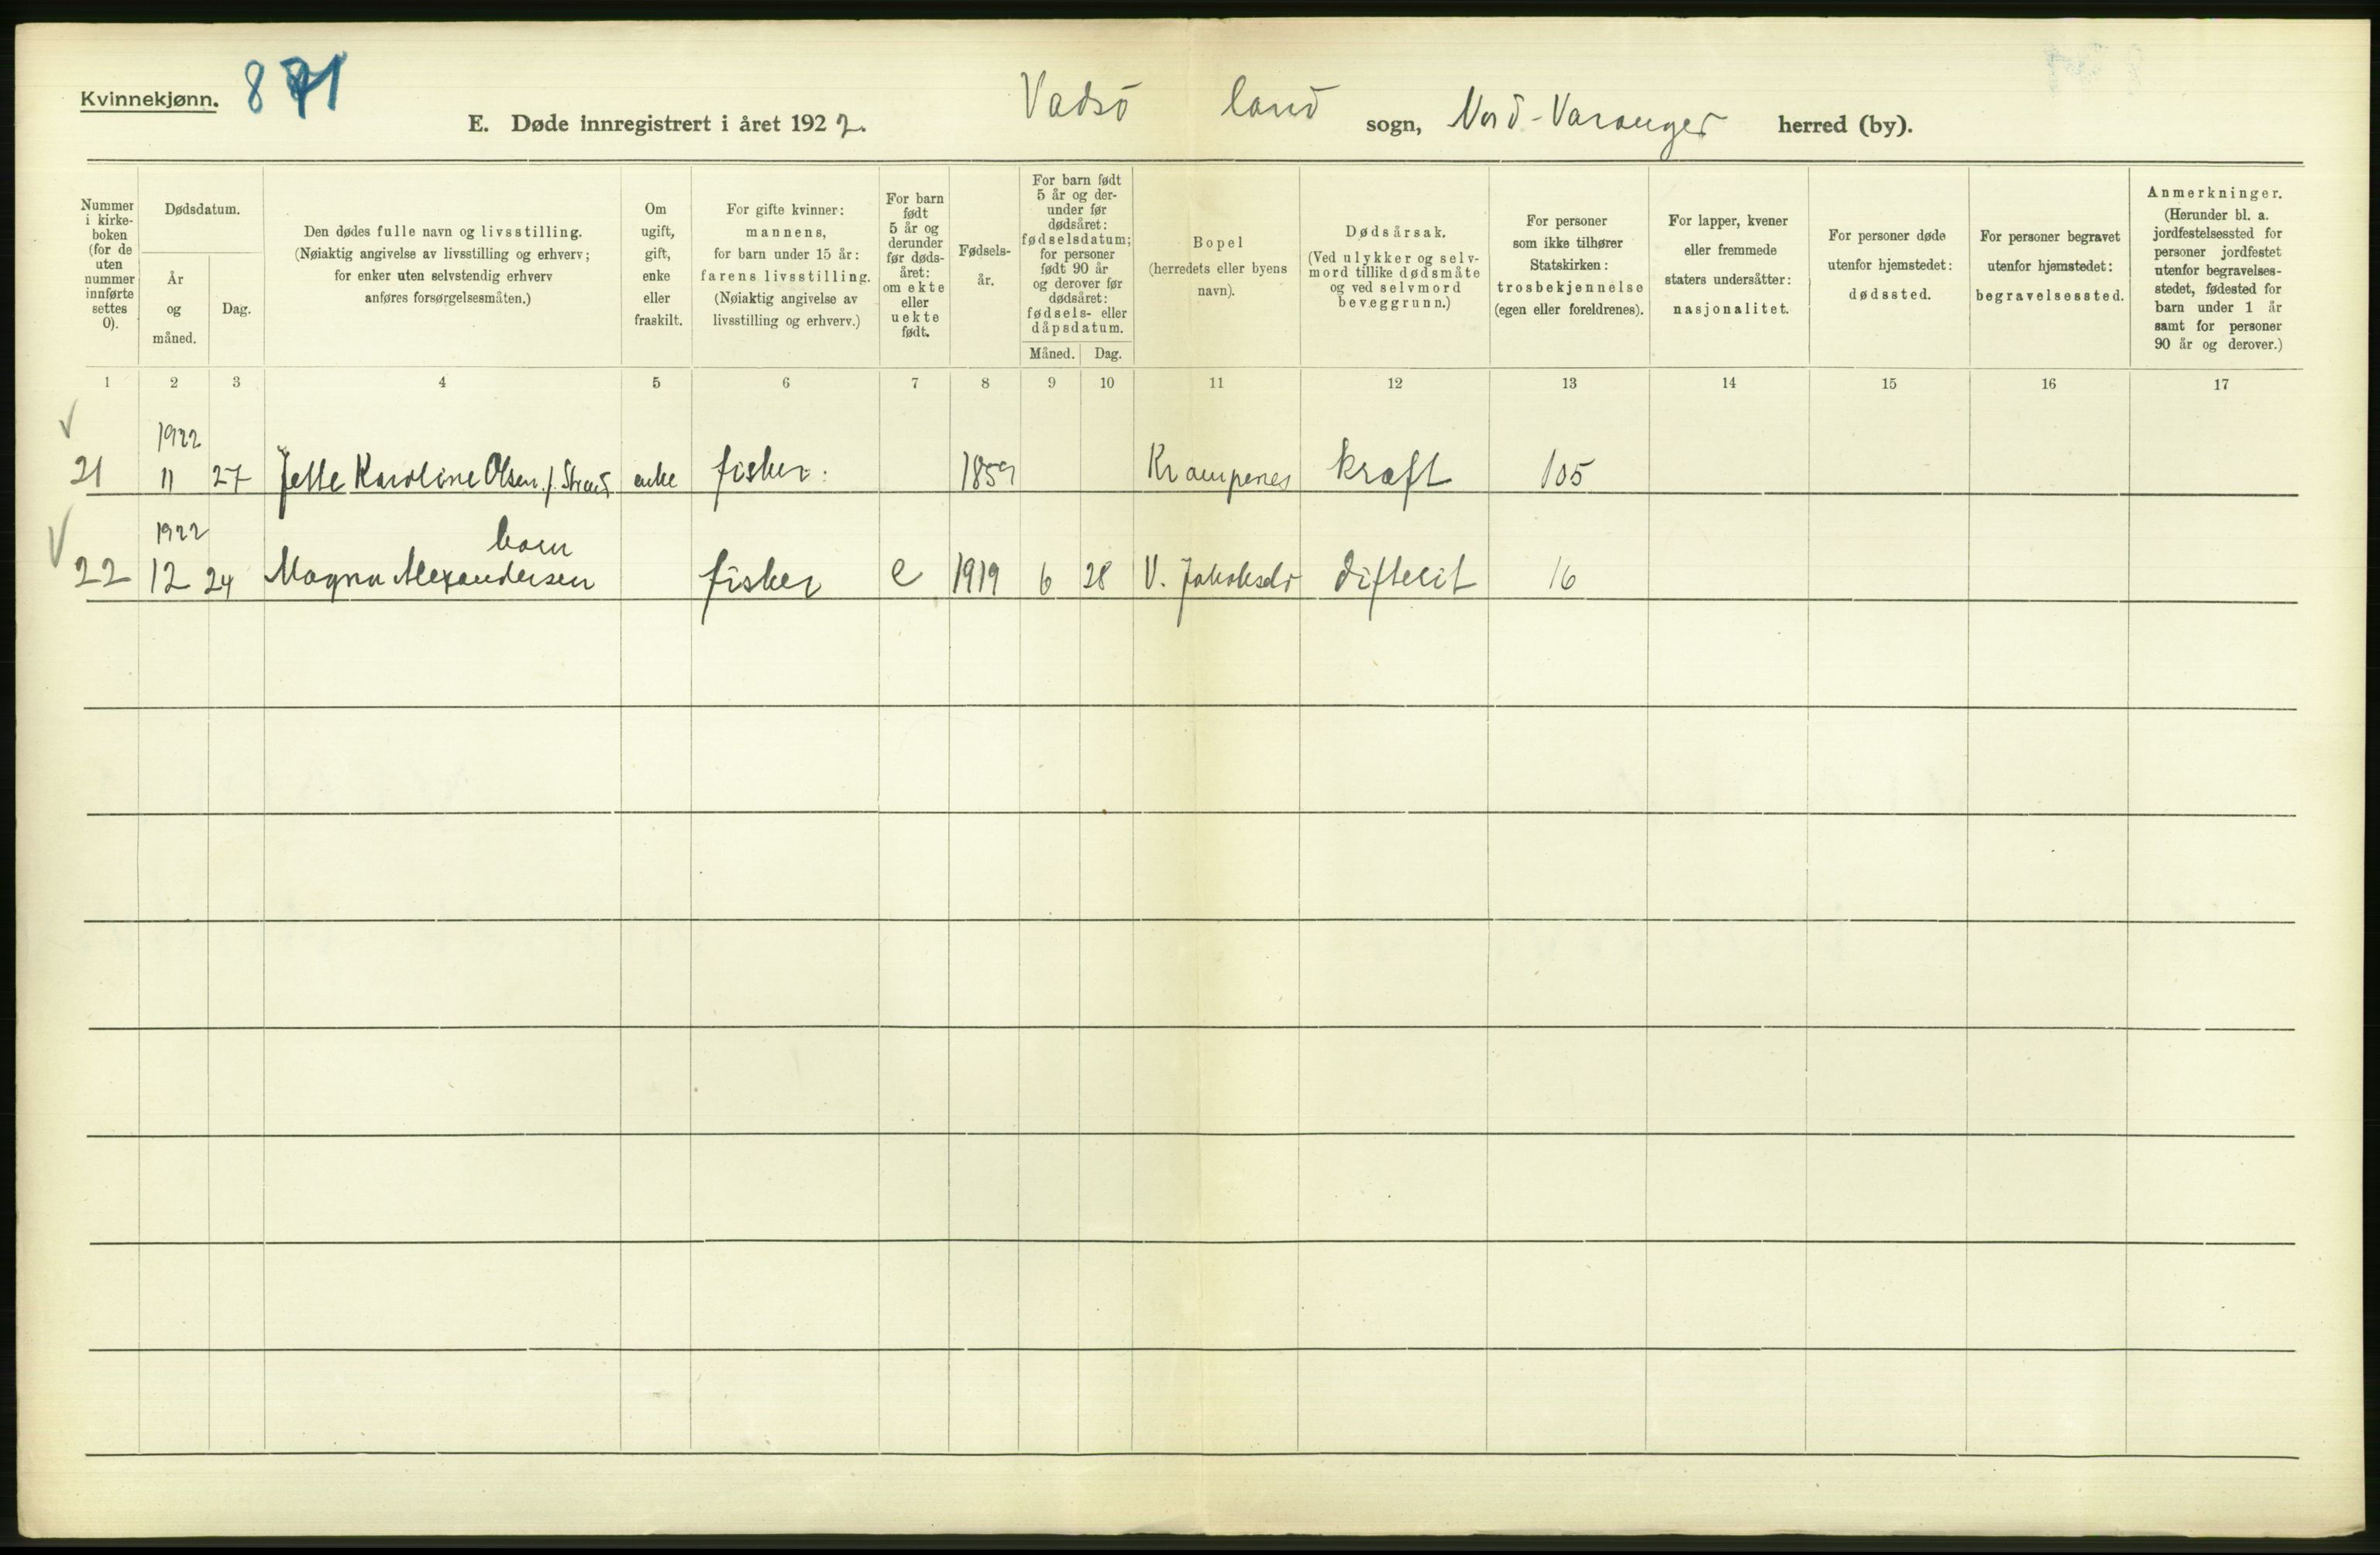 Kvinnekjønn. 871
E. Døde innregistrert i året 1922. Vadsö land sogn, Nord-Varanger herred (by).
Nummer i kirkeboken (for de uten nummer innførte settes 0).
Dødsdatum.
År og måned.
Dag.
Den dødes fulle navn og livsstilling.
(Nøiaktig angivelse av livsstilling og erhverv;
for enker uten selvstendig erhverv
anføres forsørgelsesmåten.)
Om
ugift,
gift,
enke
eller
fraskilt.
For gifte kvinner:
mannens,
for barn under 15 år:
farens livsstilling.
(Nøiaktig angivelse av
livsstilling og erhverv.)
For barn
født
5 år og
derunder
før døds-
året:
om ekte
eller
uekte
født.
Fødsels-
år.
For barn født
5 år og der-
under før
dødsåret:
fødselsdatum;
for personer
født 90 år
og derover før
dødsåret:
fødsels- eller
dåpsdatum.
Måned. Dag.
Bopel
(herredets eller byens
navn).
Dødsårsak.
(Ved ulykker og selv-
mord tillike dødsmåte
og ved selvmord
beveggrunn.)
For personer
som ikke tilhører
Statskirken:
trosbekjennelse
(egen eller foreldrenes).
For lapper, kvener
eller fremmede
staters undersåtter:
nasjonalitet.
For personer døde
utenfor hjemstedet:
dødssted.
For personer begravet
utenfor hjemstedet:
begravelsessted.
Anmerkninger.
(Herunder bl. a.
jordfestelsessted for
personer jordfestet
utenfor begravelses-
stedet, fødested for
barn under 1 år
samt for personer
90 år og derover.)
1 2 3 4 5 6 7 8 9 10 11 12 13 14 15 16 17
1922
21 11 27 Jette Karoline Olsen f. Strand enke fisker. 1859 Krampenes kræft 105
1922 barn
22 12 24 Magna Alexandersen fisker e 1919 6 28 V. Jakobselv difterit 16